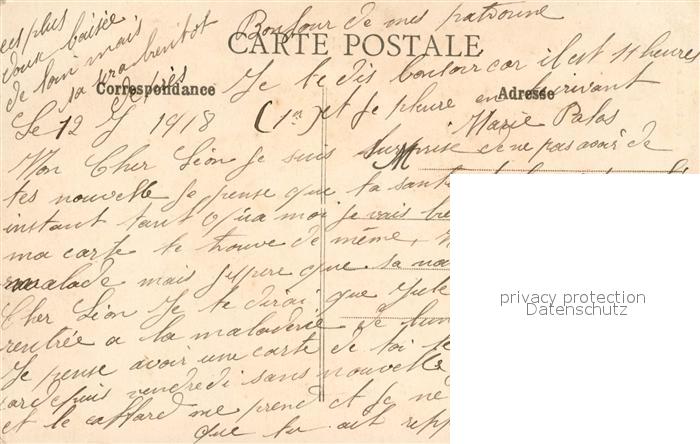 Bonjour de mes patronne
ces plus
doux baisée
de loin mais
sa vra bientot
CARTE POSTALE
Correspondance
Adresse
Je te dis bonsoir car il est 11 heures
et je pleure en ecrivant
Marie Palas
Le 12 J 1918 (1er)
Mon Cher Léon Je suis surprise de ne pas avoir de
tes nouvelle Je pense que ta sant
instant tant qu'a moi je vais bie
ma carte te trouve de même
malade mais j'espere que sa va
Cher Léon Je te dirai que
rentrée a la maladerie de lun
Je pense avoir une carte de toi
car depuis vendredi sans nouvelle
et le caffard me prend et Je ne
que tu ait rep
privacy protection
Datenschutz